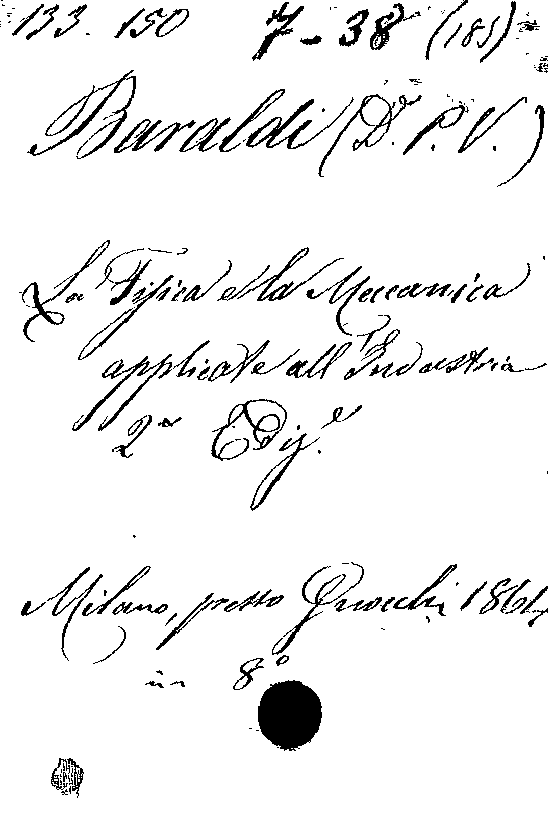 133. 150 7-38 (185)
Baraldi (Dr. P. V.)
La Fisica e la Meccanica
applicate all'Industria
2a Ediz.e
Milano, presso Gnocchi 1864
in 8°